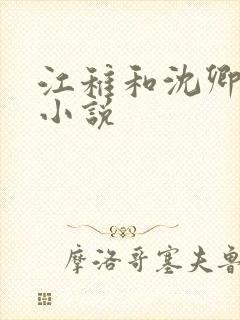 江稚和沈卿
小说
摩洛哥塞夫鲁